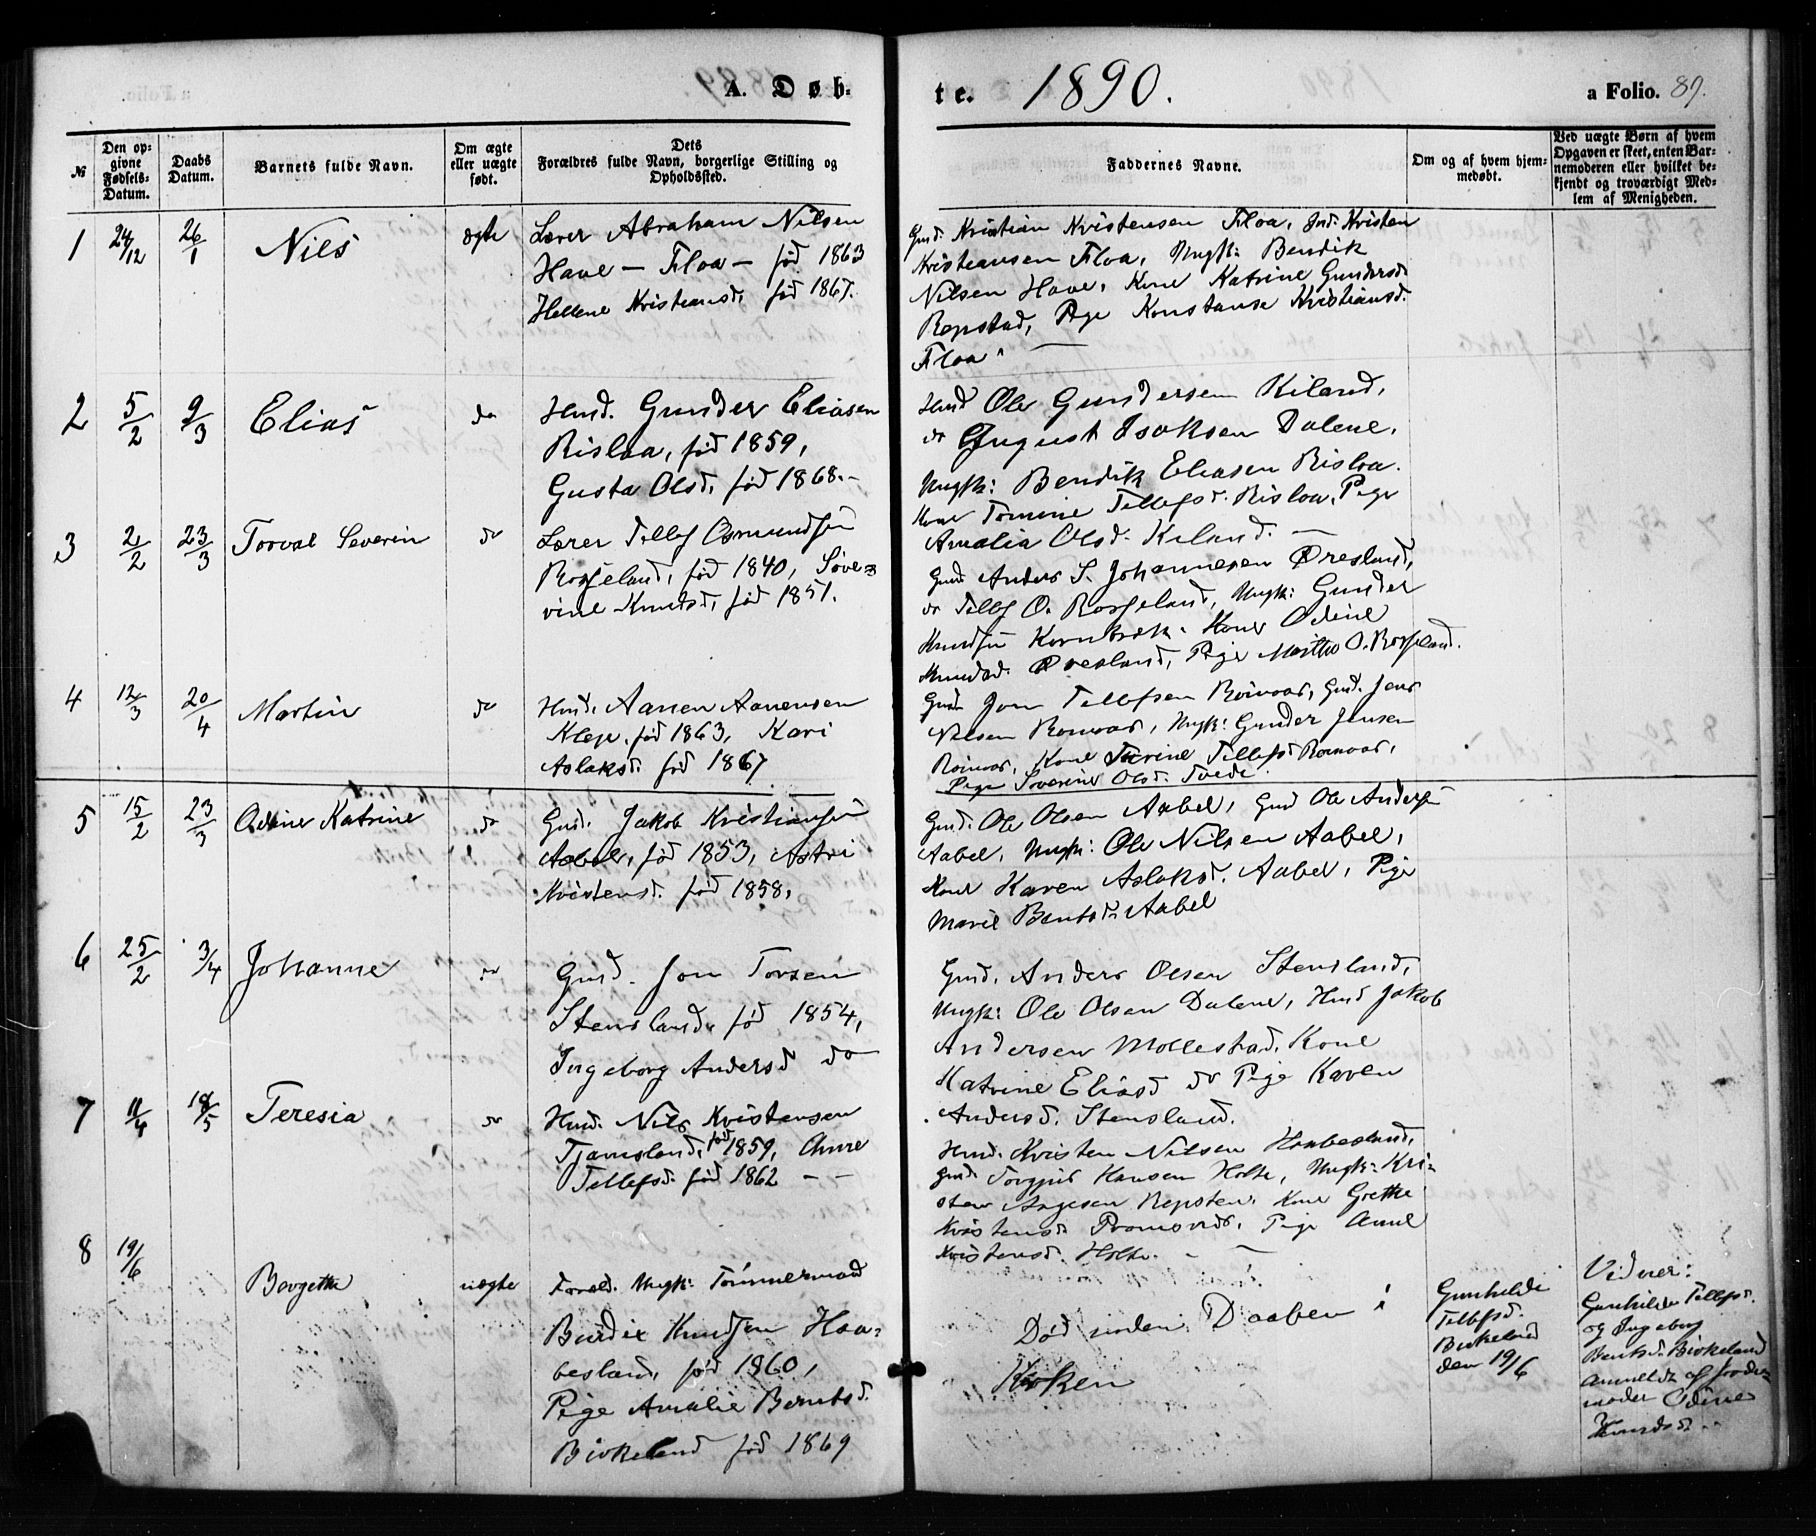 A. Døb-
te. 1890.
a Folio. 89.
№
Den op-
givne
Fødsels-
Datum.
Daabs
Datum.
Barnets fulde Navn.
Om ægte
eller uægte
født.
Dets
Forældres fulde Navn, borgerlige Stilling og
Opholdssted.
Faddernes Navne.
Om og af hvem hjem-
medøbt.
Ved uægte Børn af hvem
Opgaven er skeet, enten Bar-
nemoderen eller hvilket be-
kjendt og troværdigt Med-
lem af Menigheden.
1 24/12 26/1 Nils ægte
Lærer Abraham Nilsen
Have - Floa - fød 1863
Hellene Kristiansd. fød 1867.
Gmd. Kristian Kristensen Floa, Kristen
Kristiansen Floa, Ungk: Bendik
Nilsen Have, Kone Katrine Gundersd.
Repstad, Pige Konstanse Kristiansd.
Floa
2 5/2 9/3 Elias do
Hmd. Gunder Eliasen
Risloa, fød 1859,
Gusta Olsd. fød 1868. -
Hmd Ole Gundersen Kiland,
do August Isaksen Dalene,
Ungk: Bendik Eliasen Risloa.
Kone Tomine Tellefsd. Risloa, Pige
Amalia Olsd. Kiland. -
3 2/2 23/3 Torval Severin do
Lærer Tellef Osmundsen
Rosseland, fød 1840, Søve-
rine Knutsd. fød 1851.
Gmd Anders S. Johannesen Øresland,
do Tellef O. Rosseland, Ungk: Gunder
Knudsen Kornbrek. Kone Odine
Knudsd. Øresland, Pige Marthe O. Rosseland.
4 12/3 20/4 Martin do
Hmd. Aanen Aanensen
Kleje, fød 1863, Kari
Aslaksd. fød 1867
Gmd Jon Tellefsen Roinvar, Gmd. Jens
Nilsen Roinvar, Ungk: Gunder Jensen
Roinvar, Kone Tarine Tellefsd Roinvar,
Pige Severine Olsd. Tvede.
5 15/2 23/3 Odine Katrine do
Gmd. Jakob Kristiansen
Aabel, fød 1853, Astri
Kristensd. fød 1858,
Gmd. Ole Olsen Aabel, Gmd Ole Anders
Aabel, Ungk: Ole Nilsen Aabel,
Kone Karen Aslaksd. Aabel, Pige
Marie Bentsd. Aabel
6 25/2 3/4 Johanne do
Gmd. Jon Torsen
Stensland, fød 1854,
Ingeborg Andersd do
Gmd. Anders Olsen Stensland,
Ungk: Ole Olsen Dalene, Hmd Jakob
Andersen Mollestad, Kone
Katrine Eliasd do Pige Karen
Andersd. Stensland.
7 11/4 18/5 Teresia do
Hmd. Nils Kristensen
Tjomsland, fød 1859, Anne
Tellefsd. fød 1862 - -
Hmd. Kristen Nilsen Haabesland,
Gmd. Torgjus Hansen Holte, Ungk: Kri-
sten Aagesen Repsten, Kone Grethe
Kristensd. , Pige Anne
Kristensd. Holte. - -
8 19/6 Borgette uægte
Foræld. Ungk: Tømmermand
Bendix Knudsen Haa-
besland, fød 1860,
Pige Amalie Berntsd.
Birkeland fød 1869
Død uden Daaben i
Kirken
Gunhilde
Tellefsd.
Birkeland
den 19/6
Vidner:
Gunhilde Tellefsd.
og Ingeborg
Bentsd. Birkeland
anmeldt af Jorde-
moder Odine
Knudsd.